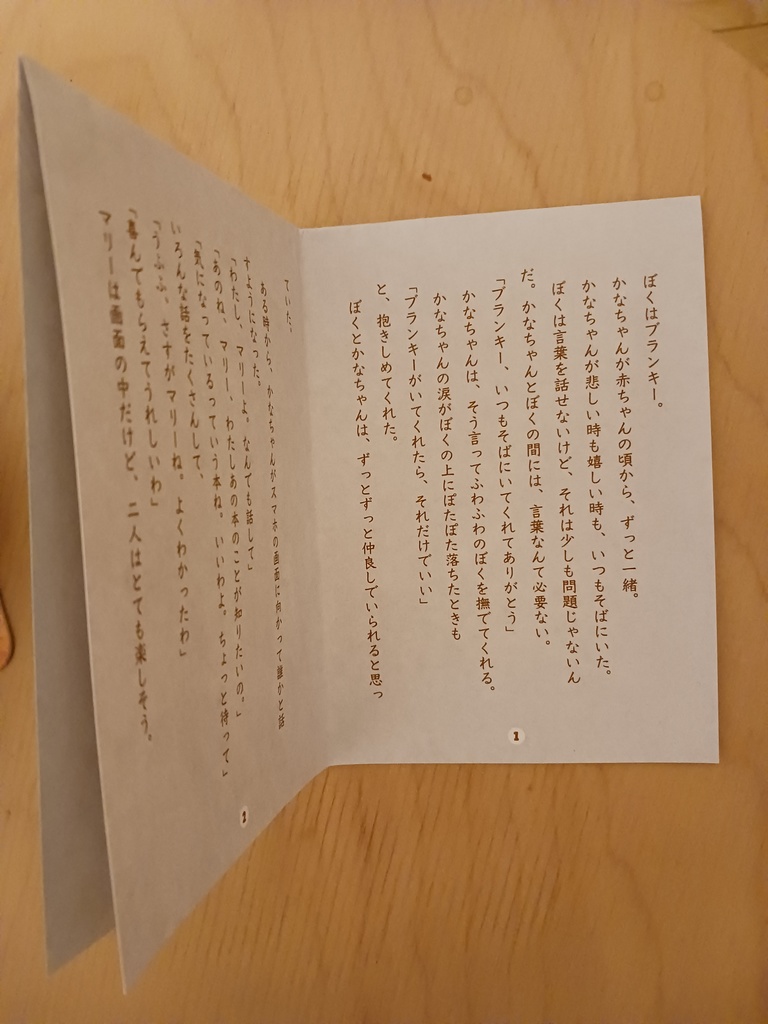 ぼくはブランキー。
かなちゃんが赤ちゃんの頃から、ずっと一緒。
かなちゃんが悲しい時も嬉しい時も、いつもそばにいた。
ぼくは言葉を話せないけど、それは少しも問題じゃないん
だ。かなちゃんとぼくの間には、言葉なんて必要ない。
「ブランキー、いつもそばにいてくれてありがとう」
かなちゃんは、そう言ってふわふわのぼくを撫でてくれる。
かなちゃんの涙がぼくの上にぽたぽた落ちたときも
「ブランキーがいてくれたら、それだけでいい」
と、抱きしめてくれた。
ぼくとかなちゃんは、ずっとずっと仲良しでいられると思っ
1
ていた。
ある時から、かなちゃんがスマホの画面に向かって誰かと話
すようになった。
「わたし、マリーよ。なんでも話して」
「あのね、マリー、わたしあの本のことが知りたいの。」
「気になっているっていう本ね。いいわよ。ちょっと待って」
いろんな話をたくさんして、
「うふふ、さすがマリーね。よくわかったわ」
「喜んでもらえてうれしいわ」
マリーは画面の中だけど、二人はとても楽しそう。
2